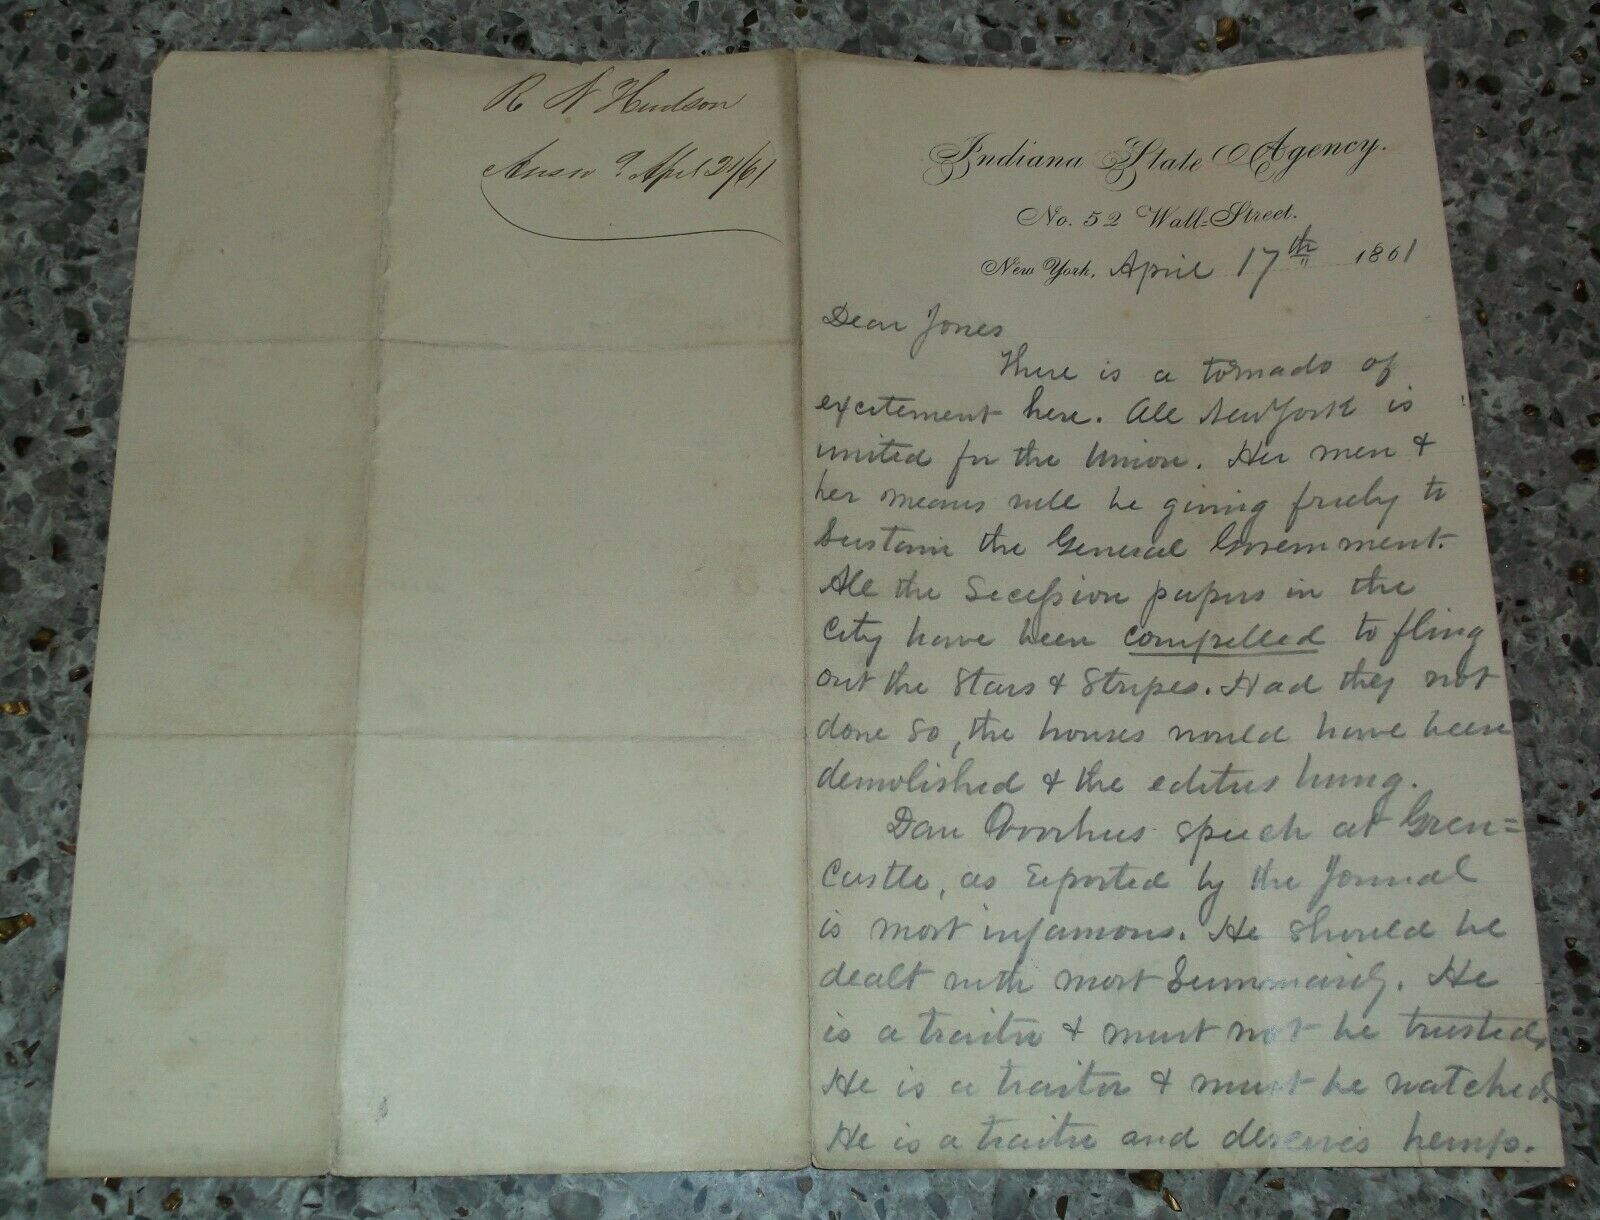 R N Hudson
Answd Apl 24/61
Indiana State Agency.
No. 52 Wall=Street.
New York, April 17th 1861
Dear Jones
There is a tornado of
excitement here. All New York is
united for the Union. Her men &
her means will be giving freely to
Sustain the General Government.
All the Secession papers in the
City have been compelled to fling
out the Stars & Stripes. Had they not
done so, the houses would have been
demolished & the editors hung.
Dan Voorhees speech at Green=
Castle, as reported by the Journal
is most infamous. He should be
dealt with most Summarily. He
is a traitor & must not be trusted.
He is a traitor & must be watched.
He is a traitor and deserves hemp.